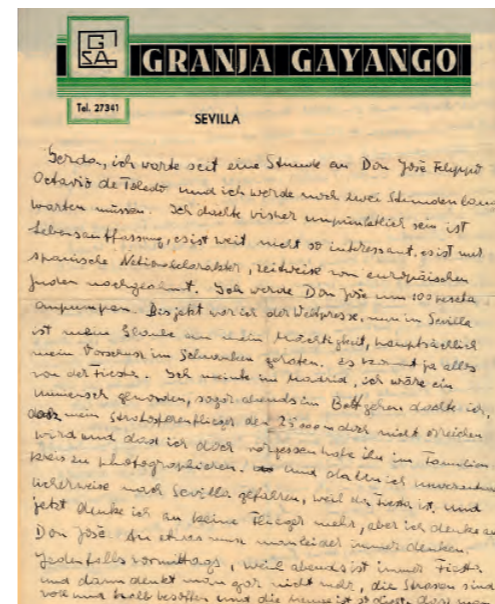 GSA
GRANJA GAYANGO
Tel. 27341
SEVILLA
Gerda, ich warte seit eine Stunde an Don José Felippo
Octavio de Toledo und ich werde noch zwei Stunden lang
warten müssen. Ich dachte bisher unpünktlich sein ist
Lebensauffassung, es ist weit nicht so interessant, es ist nur
spanische Nationalcharakter, zeitweise von europäischen
Juden nachgeahmt. Ich werde Don José um 100 peseta
anpumpen. Bis jetzt war ich der Weltpresse, nun in Sevilla
ist mein Glaube an dein Mächtigkeit, hauptsächlich
mein Vorschuss im Schwanken geraten. Es kommt ja alles
von der Fiesta. Ich meinte im Madrid, ich wäre ein
unmensch geworden, sogar abends im Bett gehen dachte ich,
dass mein Stratosferenflieger den 25000 m doch nicht erreichen
wird und dass ich doch vergessen habe ihn im Familien
kreis zu photographieren. und da bin ich
licherweise nach Sevilla gefahren, weil da Fiesta ist, und
jetzt denke ich an keine Flieger mehr, aber ich denke an
Don José. An etwas muss man leider immer denken.
Jedenfalls vormittags, weil abends ist immer Fiesta
und dann denkt man gar nicht mehr, die Strassen sind
voll und halb besoffen und die